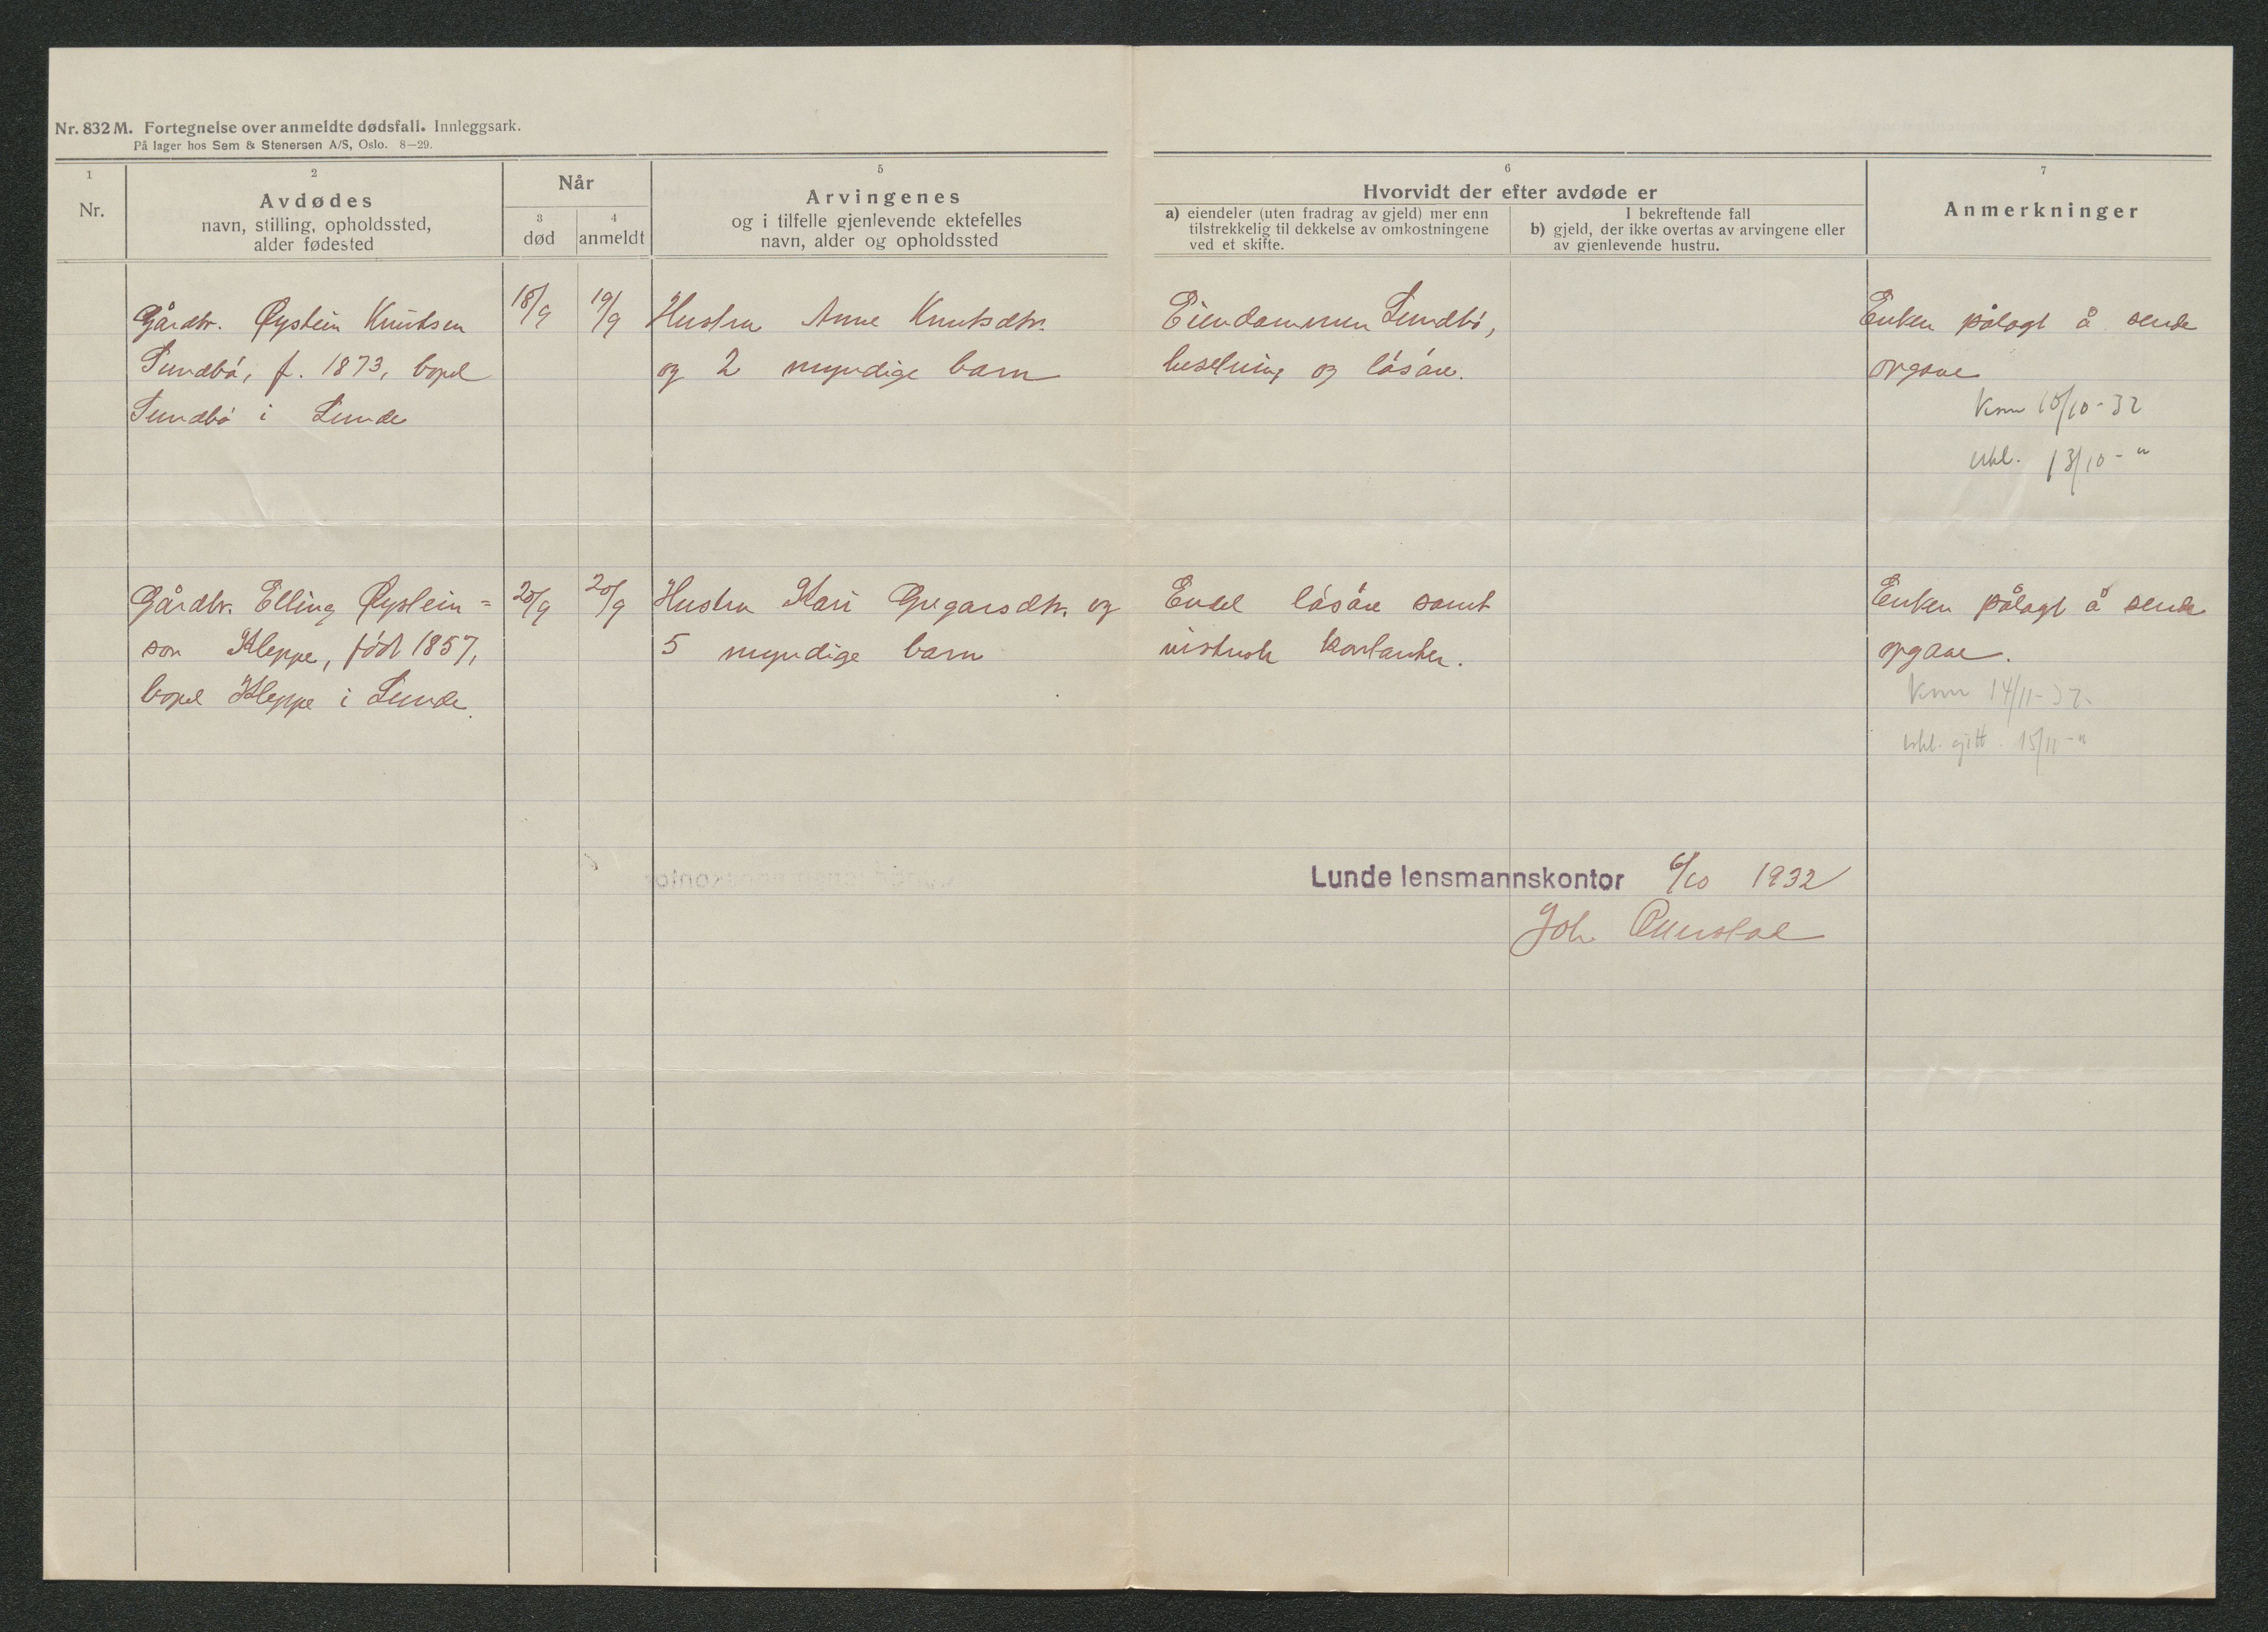 Nr. 832 M. Fortegnelse over anmeldte dødsfall. Innleggsark.
På lager hos Sem & Stenersen A/S, Oslo. 8—29.
1
Nr.
2
Avdødes
navn, stilling, opholdssted,
alder fødested
Når
3
død
4
anmeldt
5
Arvingenes
og i tilfelle gjenlevende ektefelles
navn, alder og opholdssted
6
Hvorvidt der efter avdøde er
a) eiendeler (uten fradrag av gjeld) mer enn
tilstrekkelig til dekkelse av omkostningene
ved et skifte.
I bekreftende fall
b) gjeld, der ikke overtas av arvingene eller
av gjenlevende hustru.
7
Anmerkninger
Gårdbr. Øystein Knutsen
Sundbö, f. 1873, bopel
Sundbö i Lunde
18/9
19/9
Hustru Anne Knutsdtr.
og 2 myndige barn
Eiendommen Sundbö,
besetning og lösöre.
Enken pålagt å sende
opgave
Kom 10/10-32
utl. 13/10-"
Gårdbr. Elling Øystein=
son Kleppe, född 1857,
bopel Kleppe i Lunde.
20/9
20/9
Hustru Kari Gregarsdtr. og
5 myndige barn
Endel lösöre samt
kontanter.
Enken pålagt å sende
opgave.
Kom 14/11-32.
gitt. 15/11-"
Lunde lensmannskontor 6/10 1932
Joh.